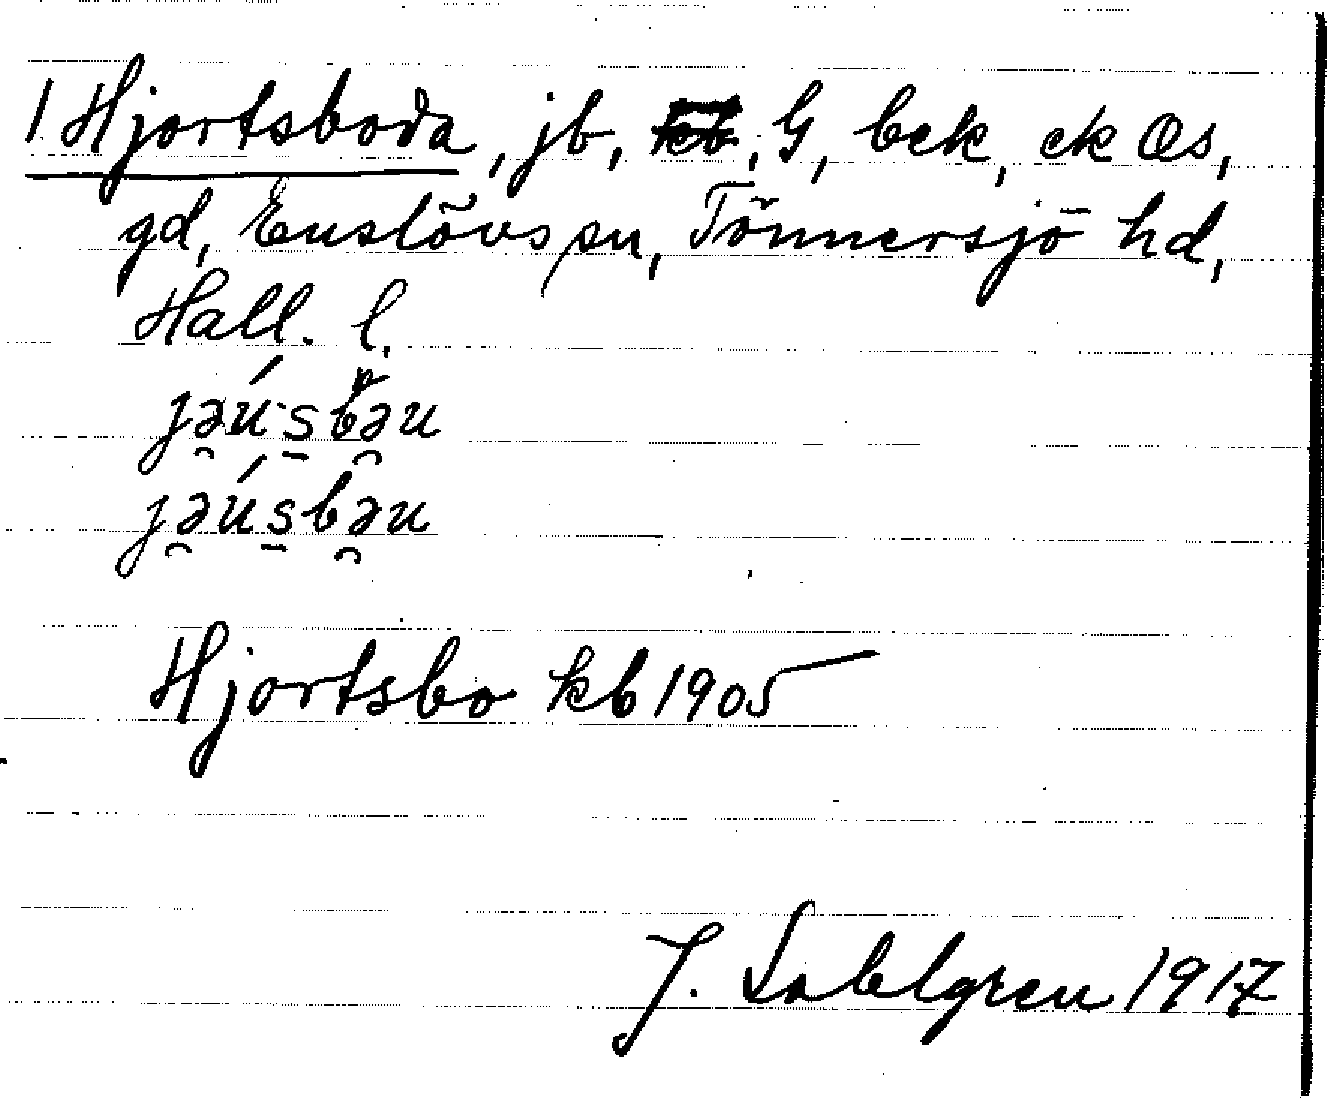 1 Hjortsboda, jb, kb, G, bek, ek Œs,
gd, Enslövs sn, Tönnersjö hd,
Hall. l.
jə̯ús̱bə̯u
jə̯ús̱bə̯u
Hjortsbo kb 1905
J. Sahlgren 1917